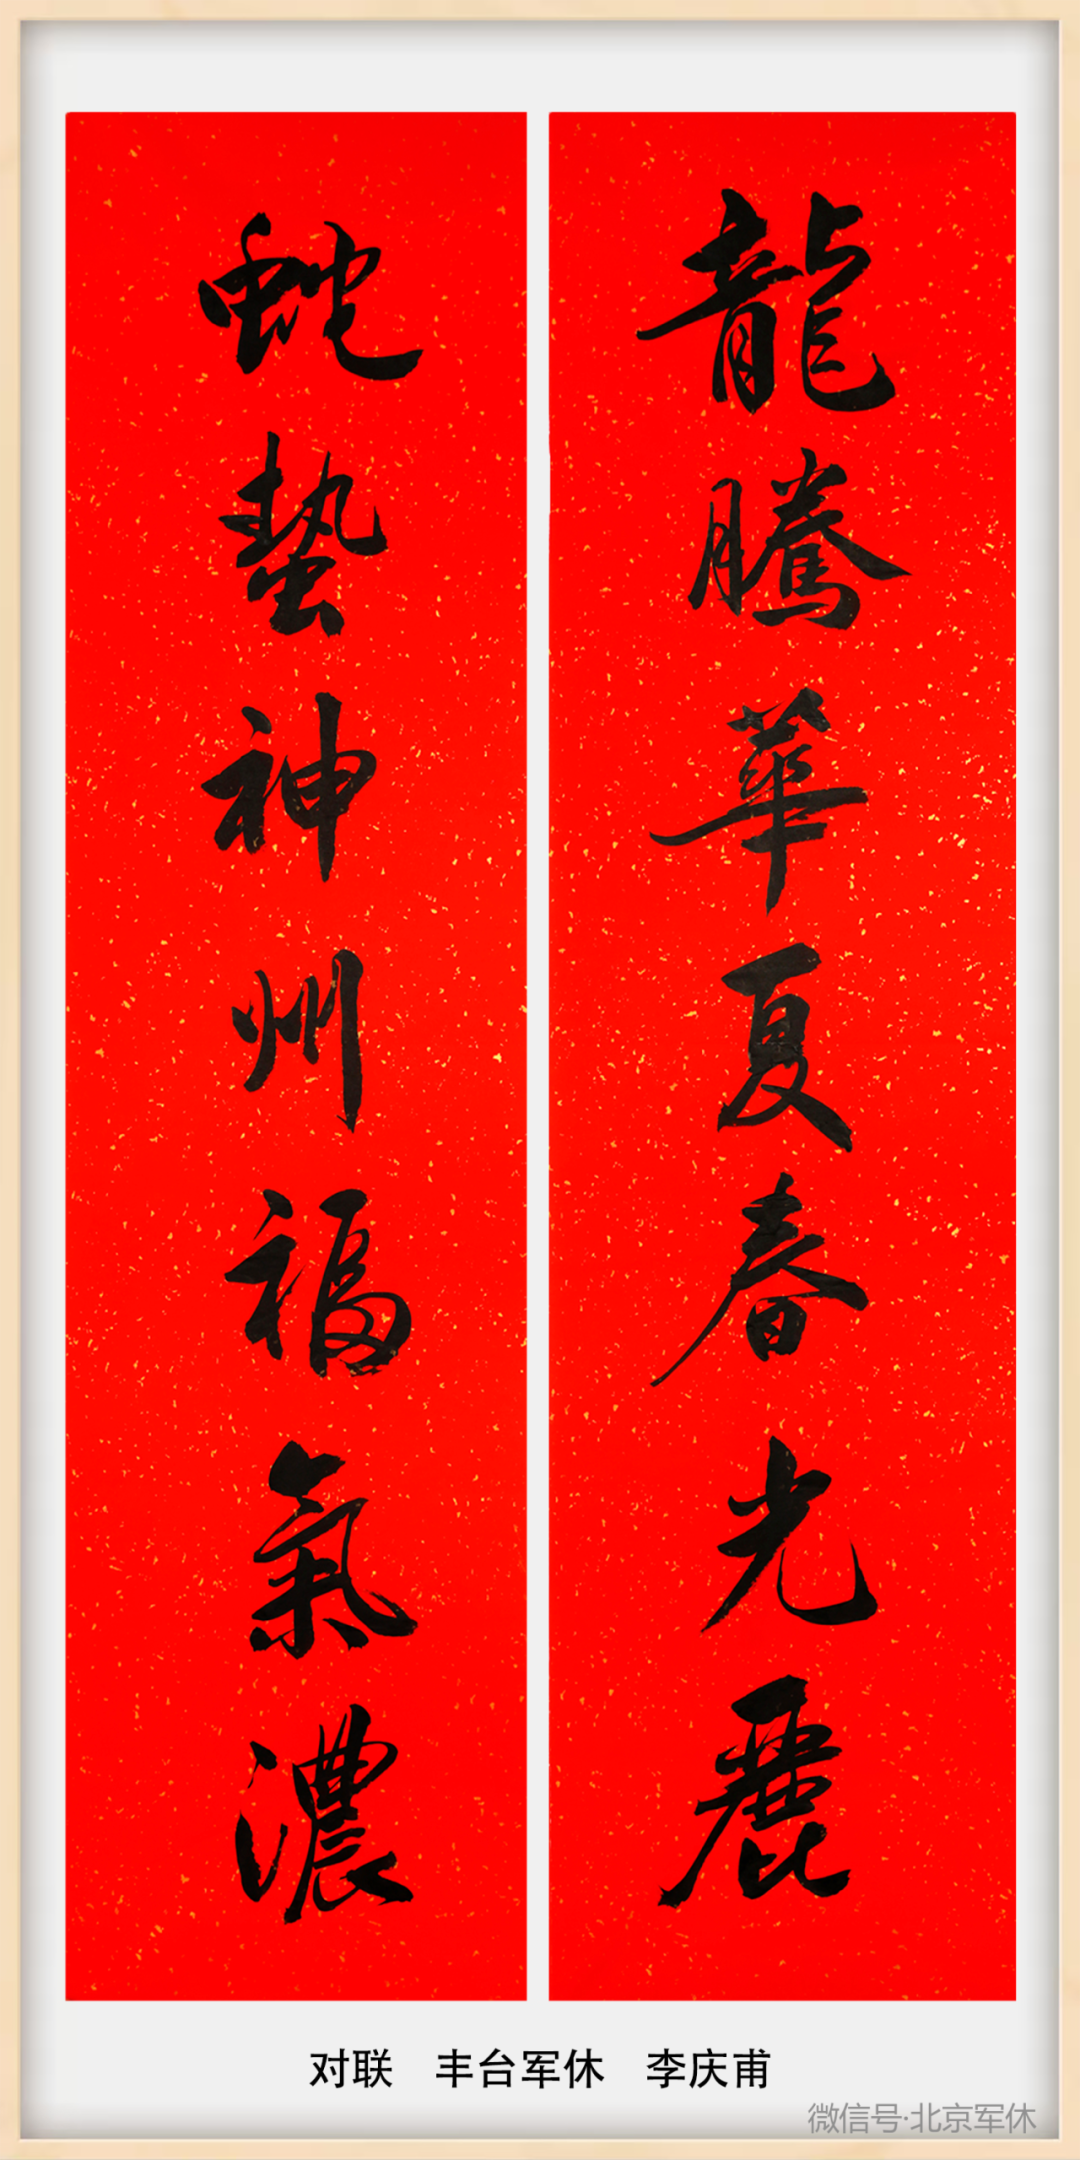 龍騰華夏春光麗
蛇蟄神州福氣濃
对联 丰台军休 李庆甫
微信号·北京军休